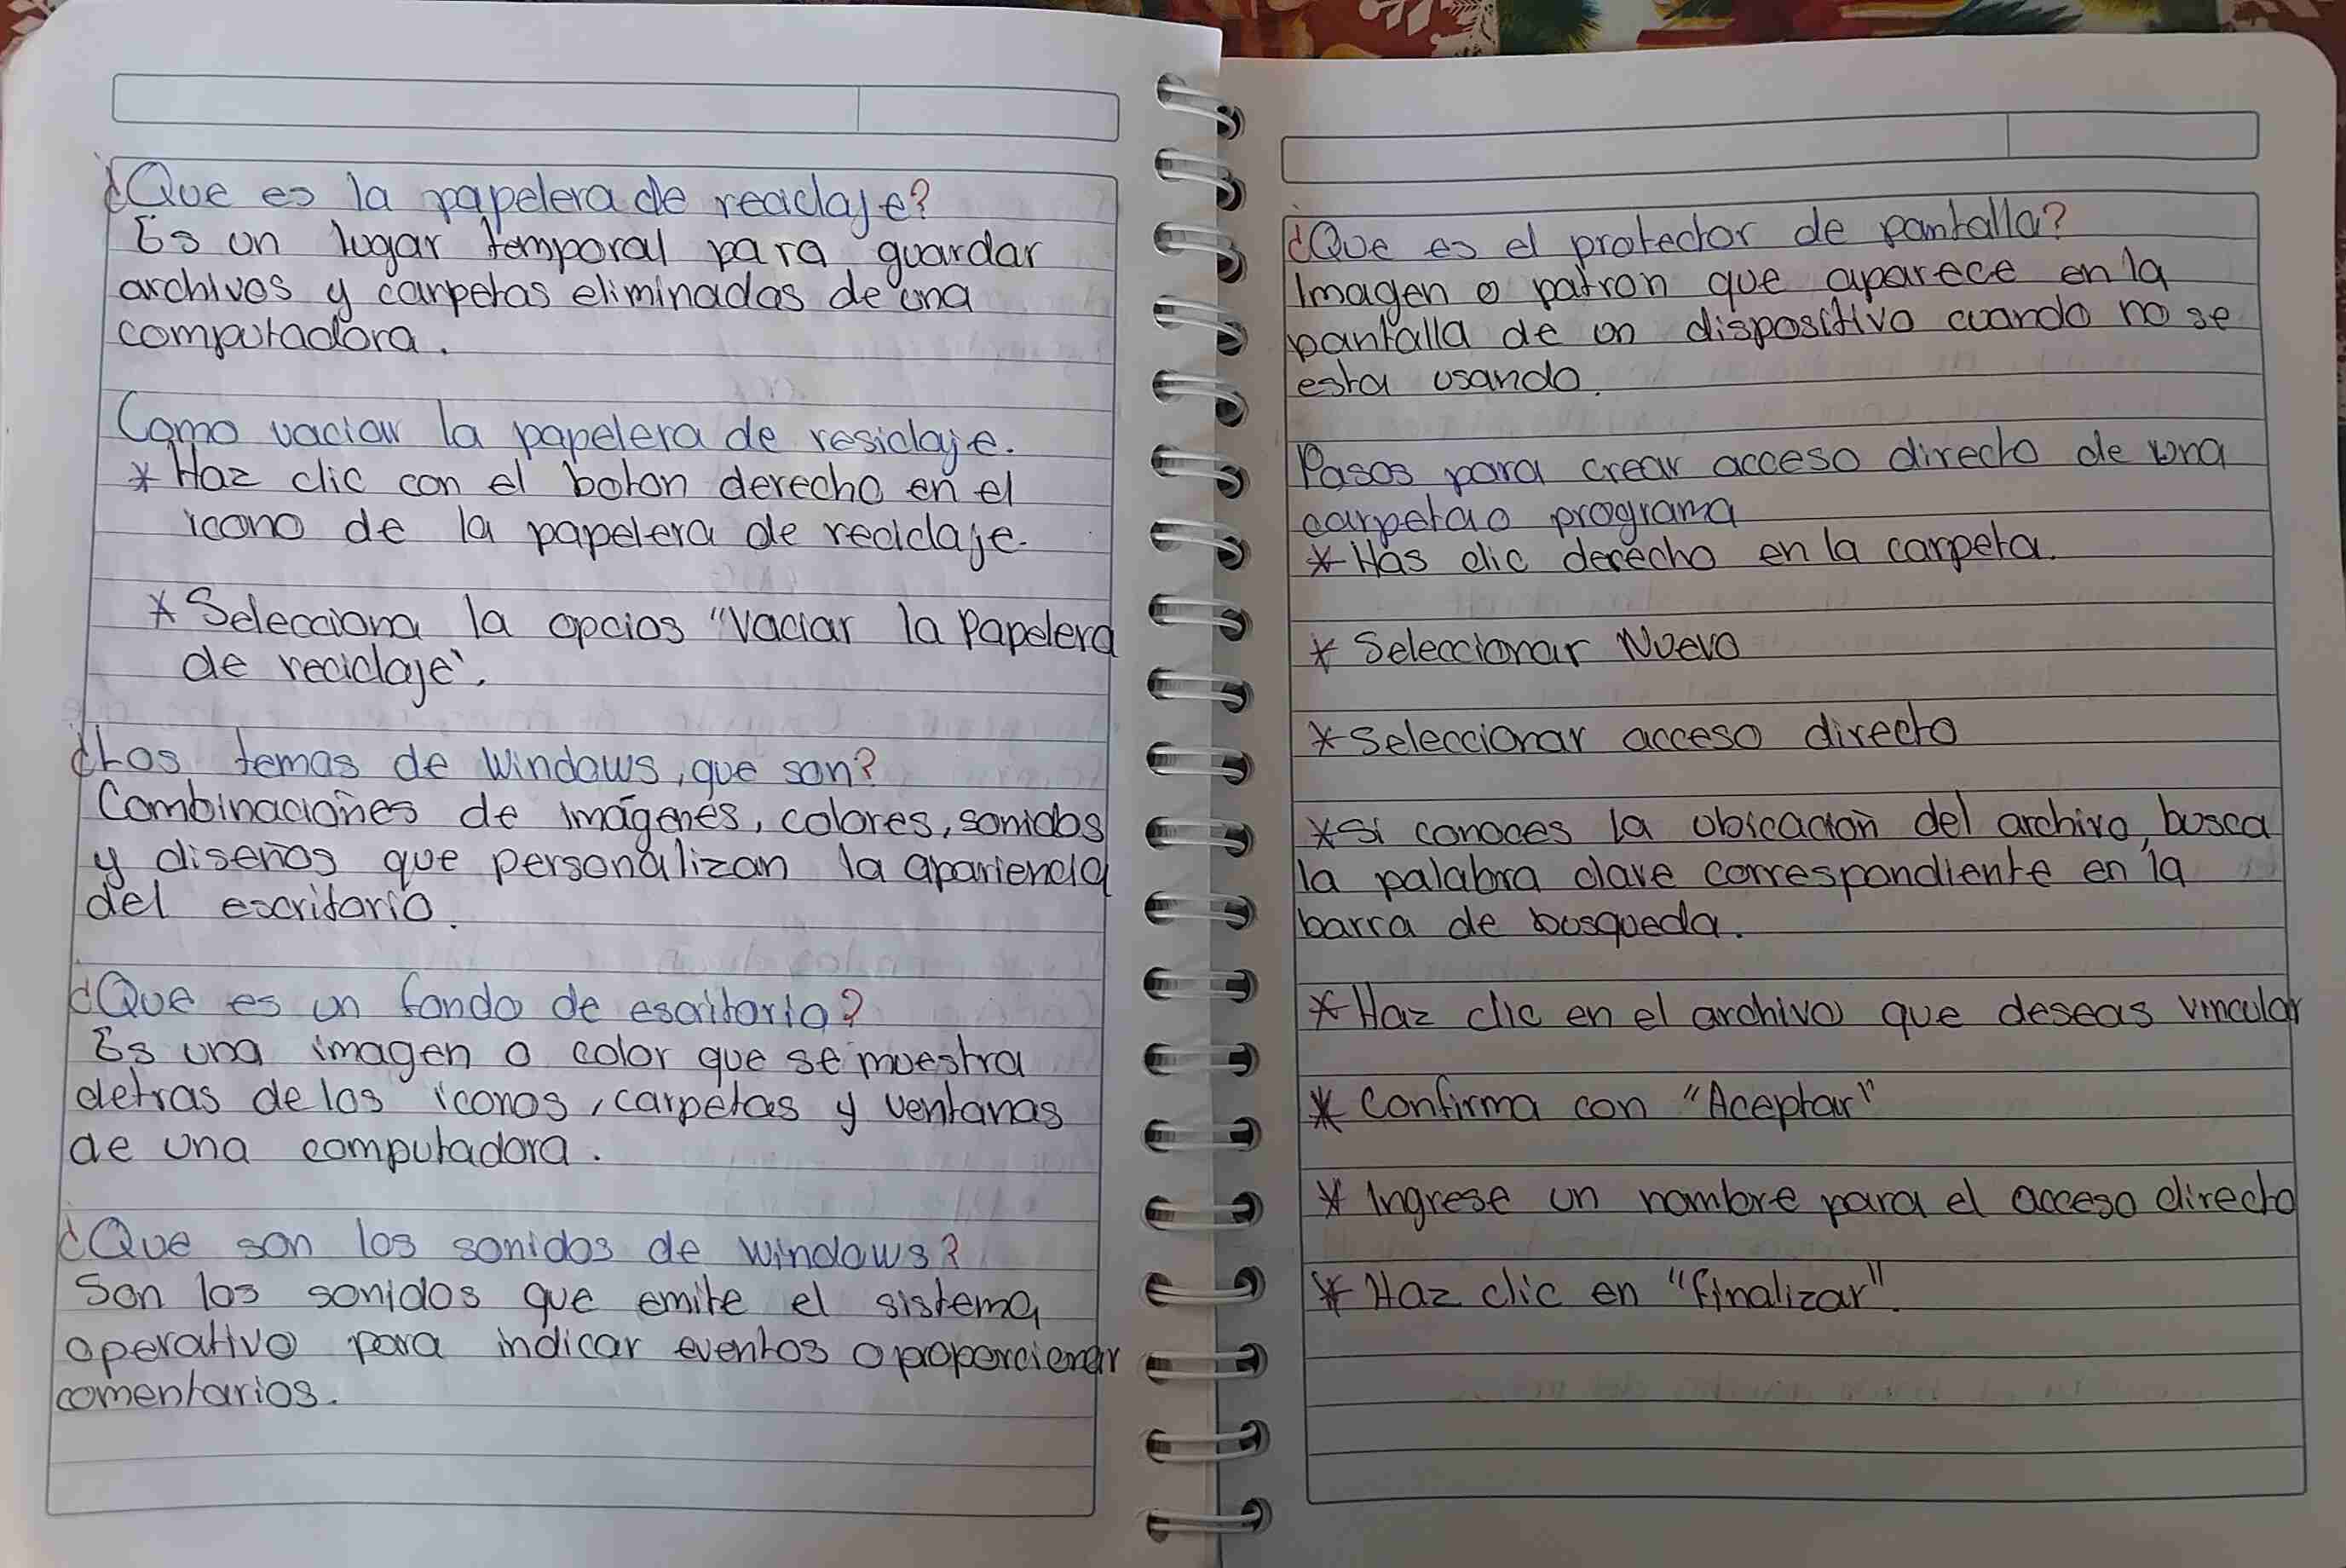 ¿Que es la papelera de reciclaje?
Es un lugar temporal para guardar
archivos y carpetas eliminadas de una
computadora.
Como vaciar la papelera de resiclaje.
* Haz clic con el boton derecho en el
icono de la papelera de reciclaje.
* Selecciona la opcios "Vaciar la Papelera
de reciclaje".
¿Los temas de Windows, que son?
Combinaciones de imágenes, colores, sonidos
y diseños que personalizan la apariencia
del escritorio.
¿Que es un fondo de escritorio?
Es una imagen o color que se muestra
detras de los iconos, carpetas y ventanas
de una computadora.
¿Que son los sonidos de windows?
Son los sonidos que emite el sistema
operativo para indicar eventos o proporcionar
comentarios.
¿Que es el protector de pantalla?
Imagen o patron que aparece en la
pantalla de un dispositivo cuando no se
esta usando.
Pasos para crear acceso directo de una
carpeta o programa
* Has clic derecho en la carpeta.
* Seleccionar Nuevo
* Seleccionar acceso directo
* Si conoces la ubicación del archivo, busca
la palabra clave correspondiente en la
barra de busqueda.
* Haz clic en el archivo que deseas vincular
* Confirma con "Aceptar"
* Ingrese un nombre para el acceso directo
* Haz clic en "Finalizar".